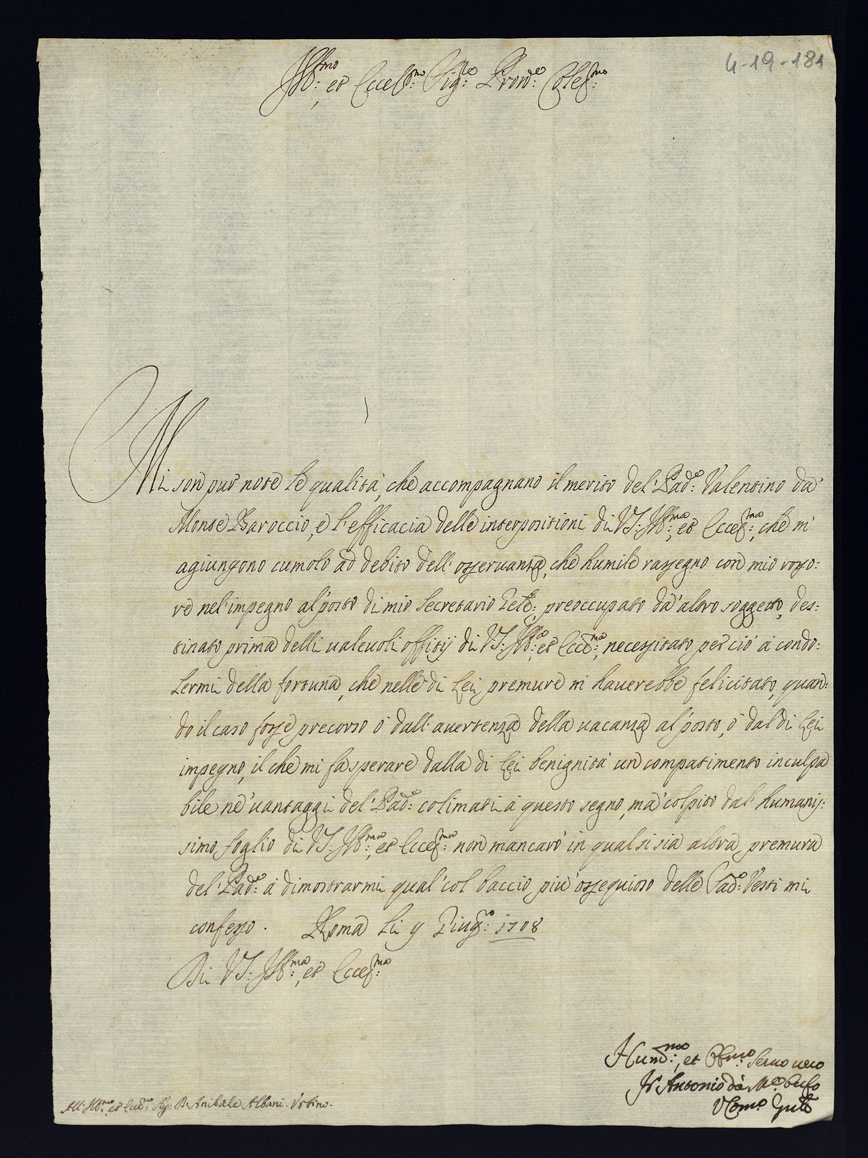 4-19-181
Ill:mo et Eccell:mo Sig:re Prone: Colef:mo
Mi son pur note le qualità, che accompagnano il merito del Pad:e Valentino da
Monte Baroccio, e l'efficacia delle interpositioni di V.S: Ill:ma, et Eccef:ma, che m'
agiungono cumolo ad debito dell'osservanza, che humile rassegno con mio rosso:
re nel'impegno al posto di mio Secretario preoccupato da altro soggetto, des:
tinato prima delli valevoli offitij di V.S: Ill:ma, et Ecce:ma, necessitato perciò à condo:
lermi della fortuna, che nelle di Lei premure m'haverebbe felicitato, quan:
do il caso fosse precorso ò dall'avertenza della vacanza al posto, ò dal di Lei
impegno, il che mi fa sperare dalla di Lei benignità un compatimento inculpa
bile ne' vantaggi del Pad:e colimati à questo segno, ma colpito dal humanis:
simo foglio di V.S: Ill:ma, et Eccef:ma non mancarò in qual si sia altra premura
del Pad:e à dimostrarmi qual col baccio più ossequioso delle Sad: Vesti mi
confesso. Roma li 9 Giug:no 1708
Di V.S: Ill:ma, et Eccef:ma
Hum:mo, et Obl:mo Servo vero
Fr Antonio da
All' Ill:mo et Ecc:mo Sig: D. Anibale Albani - Urbino.